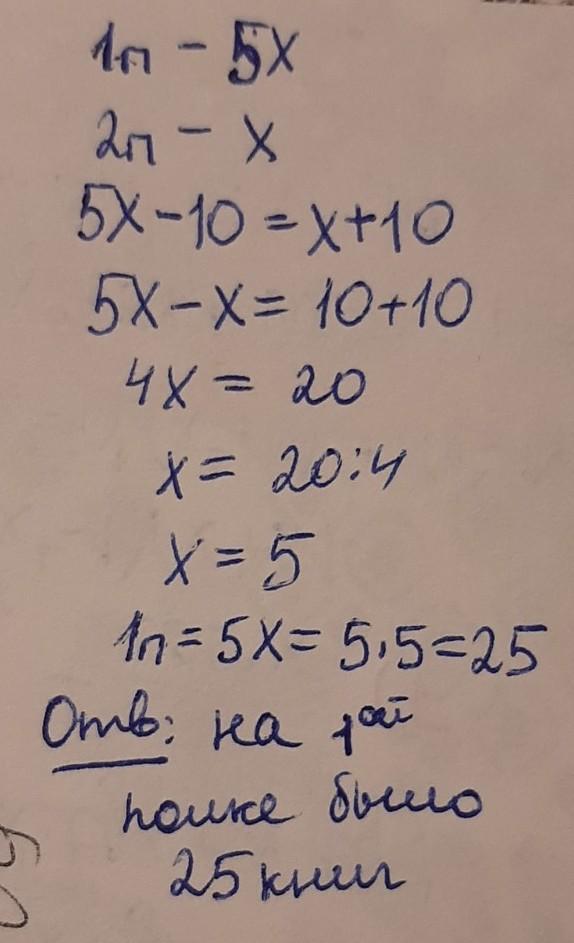 1п - 5x
2п - x
5x-10=x+10
5x-x= 10+10
4x= 20
x= 20:4
x=5
1п=5x= 5·5=25
Отв: на 1ой
полке было
25 книг